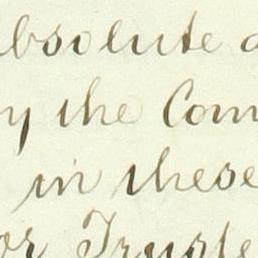 absolute a
y the Com
in these
or Truste